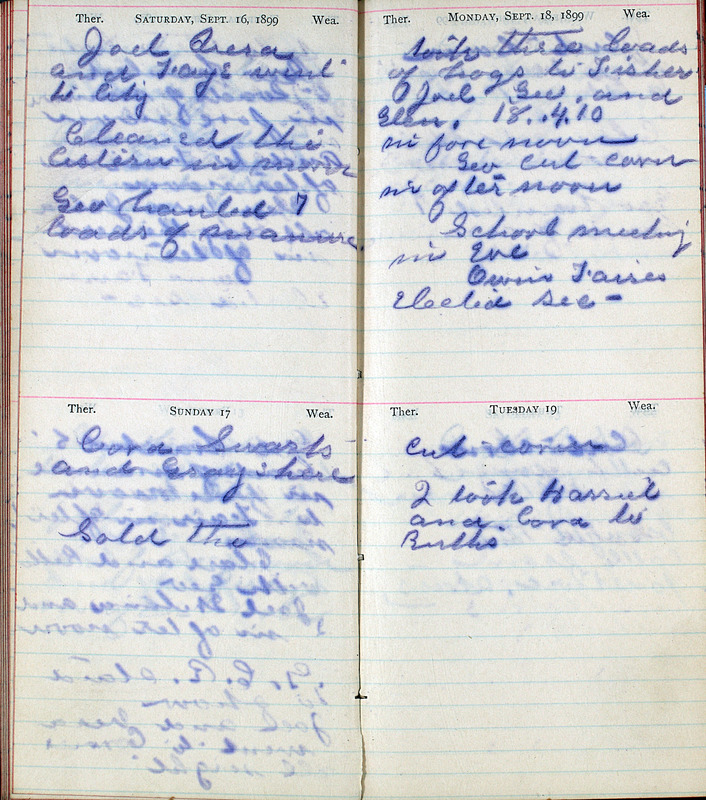 Ther. SATURDAY, SEPT. 16, 1899 Wea.
Joel
and Faye went
to City
Cleaned the
Cistern in
Geo hauled 7
loads of manure.
Ther. SUNDAY 17 Wea.
Cora Swarts
and here
Sold the
Ther. MONDAY, SEPT. 18, 1899 Wea.
took three loads
of hogs to Fisher
Joel Geo. and
Glen. 18. .4.10
in fore noon
Geo cut corn
in after noon
School meeting
in Eve
Owin Faires
Elected Sec -
Ther. TUESDAY 19 Wea.
Cut corn
I took Harriet
and Cora to
Ruths